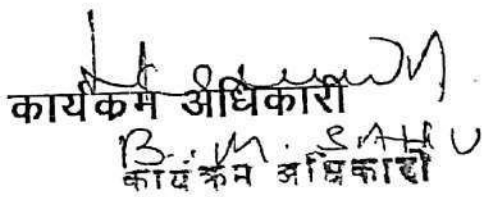 कार्यकम अधिकारी
B. M. SAHU
कार्यक्रम अधिकारी